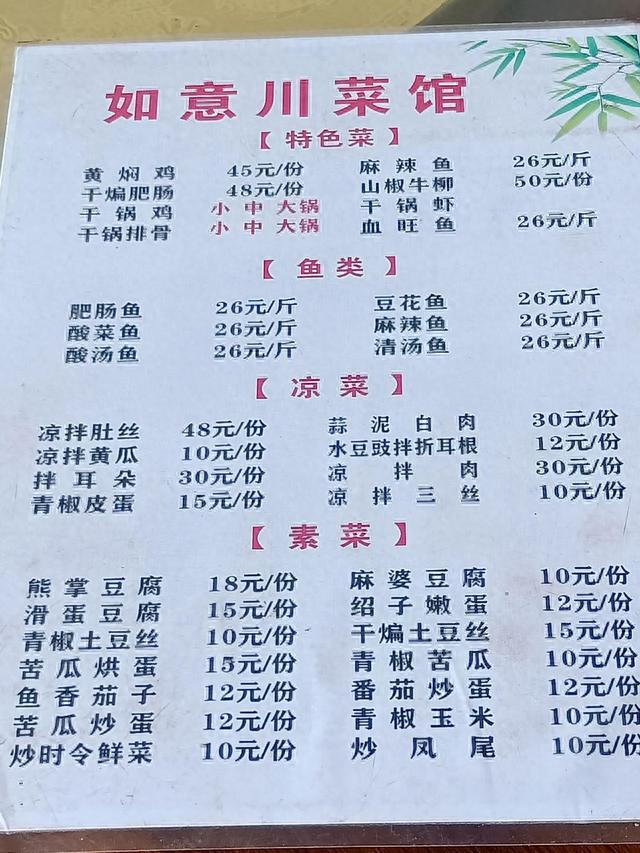 如意川菜馆
【特色菜】
黄焖鸡 45元/份 麻辣鱼 26元/斤
干煸肥肠 48元/份 山椒牛柳 50元/份
干锅鸡 小中大锅 干锅虾
干锅排骨 小中大锅 血旺鱼 26元/斤
【鱼类】
肥肠鱼 26元/斤 豆花鱼 26元/斤
酸菜鱼 26元/斤 麻辣鱼 26元/斤
酸汤鱼 26元/斤 清汤鱼 26元/斤
【凉菜】
凉拌肚丝 48元/份 蒜泥白肉 30元/份
凉拌黄瓜 10元/份 水豆豉拌折耳根 12元/份
拌耳朵 30元/份 凉拌肉 30元/份
青椒皮蛋 15元/份 凉拌三丝 10元/份
【素菜】
熊掌豆腐 18元/份 麻婆豆腐 10元/份
滑蛋豆腐 15元/份 绍子嫩蛋 12元/份
青椒土豆丝 10元/份 干煸土豆丝 15元/份
苦瓜烘蛋 15元/份 青椒苦瓜 10元/份
鱼香茄子 12元/份 番茄炒蛋 12元/份
苦瓜炒蛋 12元/份 青椒玉米 10元/份
炒时令鲜菜 10元/份 炒凤尾 10元/份